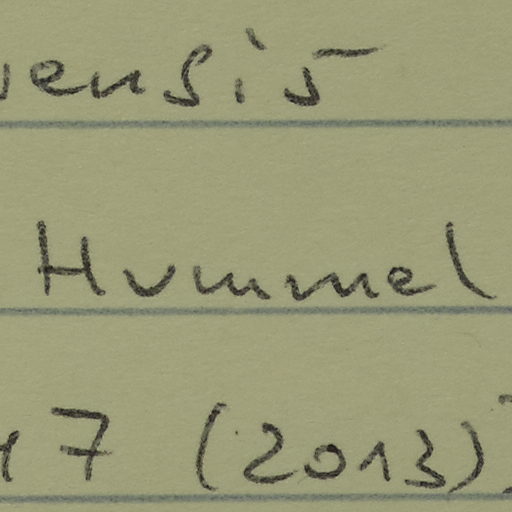 ensis
Hummel
7 (2013)